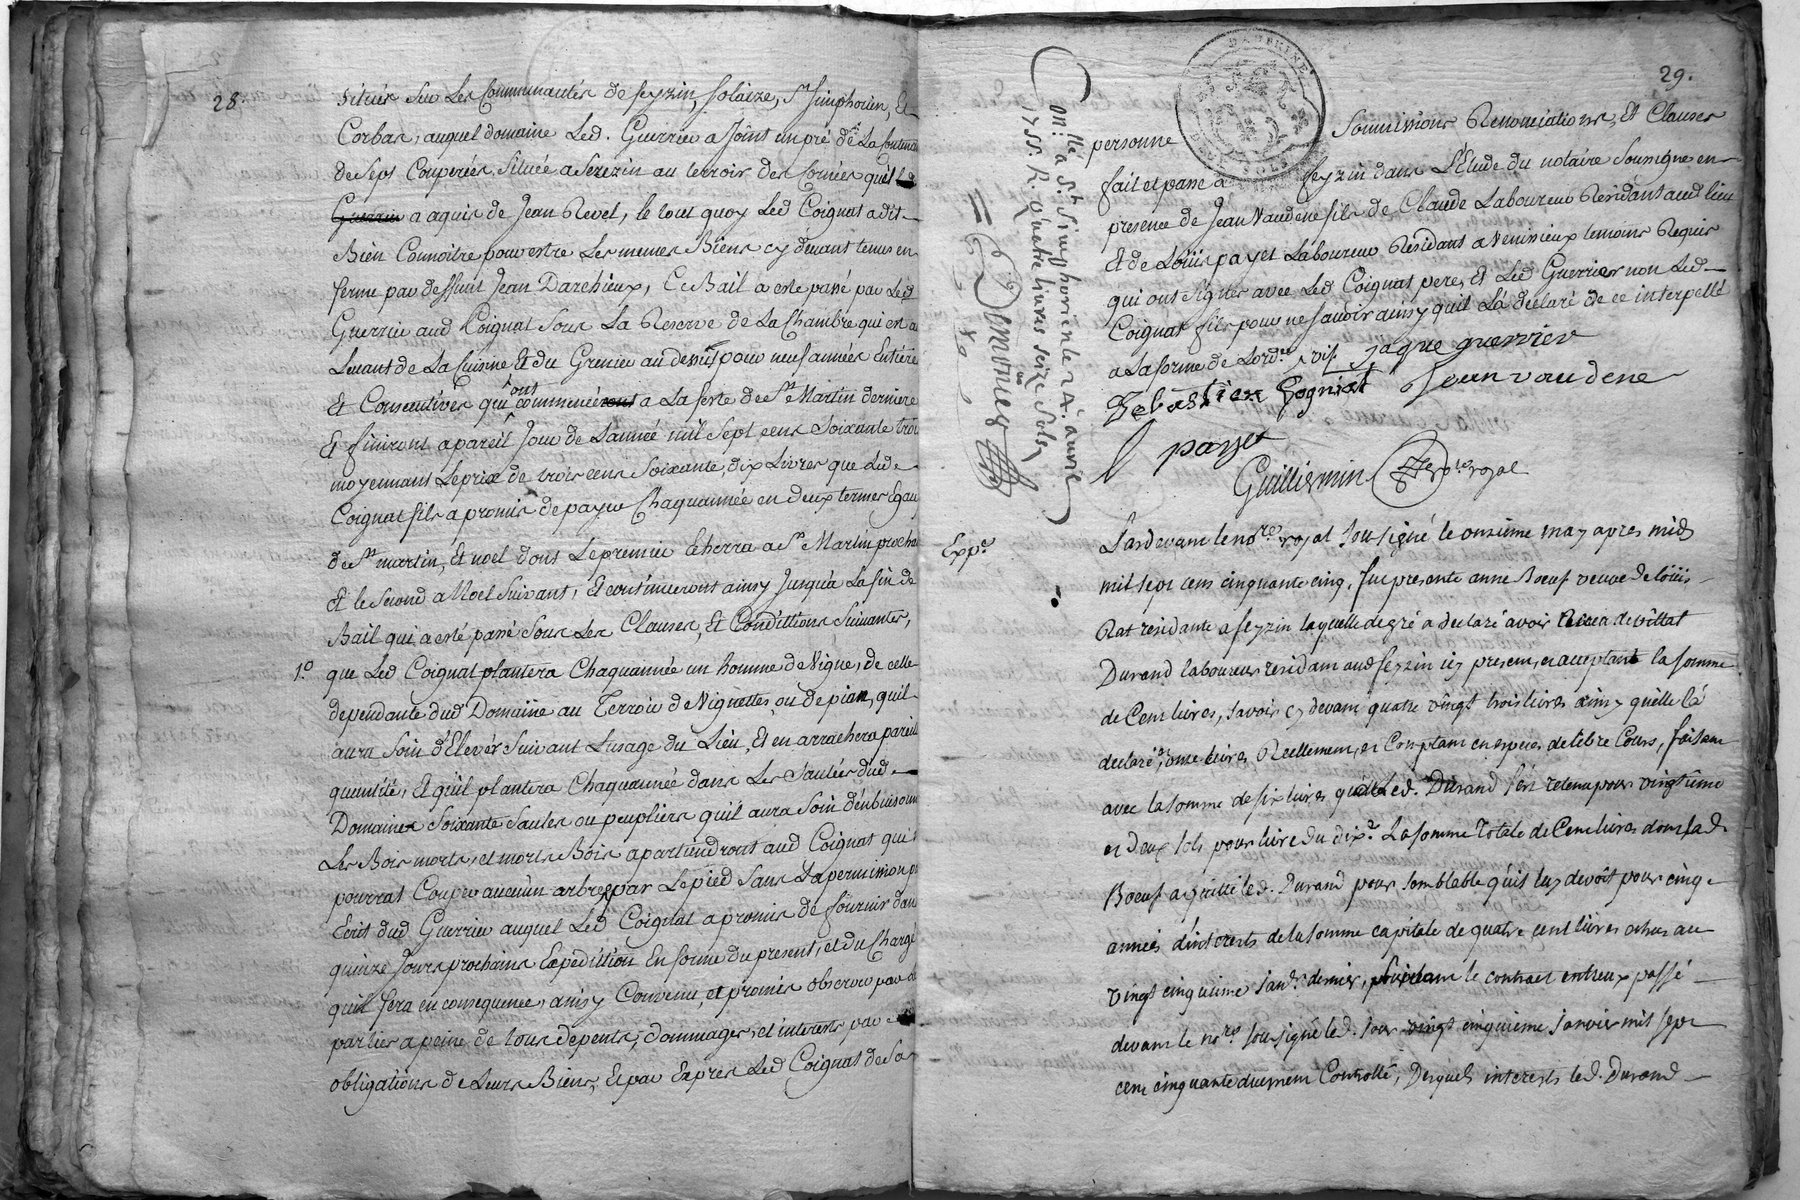 28
situés sur Les Communautés de feyzin, Solaize, St. Simphorien, Et
Corbas, auquel domaine Led. Guerrier a Joint un pré de La Contenu
de Sept Couperées, Située a Serezin au terroir des fornées quil led
Guerrier a aquis de Jean Revet, le tout quoy Led Coignat a dit
Bien Connoitre pour estre Les memes Biens cy devant tenus en
ferme par deffunt Jean Darchieux, Ce Bail a esté passé par Led
Guerrier aud Coignat Sous La Reserve de La Chambre qui est a
Levant de La Cuisine Et du Grenier au dessus pour neuf années Entiere
Et Consecutives qui ont commencé a La feste de St. Martin derniere
Et finiront a pareil Jour de Lannée mil Sept cens Soixante trois
moyennant Le prix de trois cens Soixante dix Livres que Led
Coignat fils a promis de payer Chaquannée en deux termes Egau
de St. martin, Et noel dont Le premier Echerra a St. Martin procha
Et le Second a Noel Suivant, Et continueront ainsy Jusqua La fin de
Bail qui a esté passé Sous Les Clauses, Et Condittions Suivantes,
1.° que Led Coignat plantera Chaquannée un homme de Vigne, de celle
dependante dud Domaine au Terroir de Vignettes ou de pian, quil
aura Soin d'Elever Suivant Lusage du Lieu, Et en arrachera pareille
quantité, Et quil plantera Chaquannée dans Les Saulées dud
Domaine Soixante Saules ou peupliers quil aura Soin d'enbuissonn
Les Bois morts, et morts Bois apartiendront aud Coignat qui
pourrat Couper aucun arbre par Le pied Sans La permission p
Ecrit dud Guerrier auquel Led Coignat a promis de fournir dan
quinze Jours prochains Expedittion En forme du present, et du Chargé
quil fera en consequence, ainsy Convenu et promis observer par
parties a peine de tous depents, dommages, et interests par
obligations de Leurs Biens, Et par Exprès Led Coignat de Sa
29.
personne Soumissions Renonciations, Et Clauses
fait et passé a feyzin dans L'Etude du notaire Sousigné en
presence de Jean Vaudene fils de Claude Laboureur Residant aud lieu
Et de Loüis payet Laboureur Residant a Venissieux temoins Requis
qui ont Signés avec Led Coignat pere, Et Led Guerrier non Led
Coignat fils pour ne Savoir ainsy quil La declaré de ce interpellé
a La forme de Lordce
jaque guerrier
Sebastien Cogniat Jean vaudene
l payet
Guilliermin nore royal
Onlle a St. Simphorien le 24 avril
1755. R. quatre livres seize Sols
Demonier
Expé.
Pardevant le nore royal Sousigné le onzieme may apres midy
mil sept cens cinquante cinq, fut presente anne Boeuf veuve de loüis
Rat residante a feyzin laquelle de gré a declaré avoir Receu de vittat
Durand laboureur residant aud feyzin icy present, et acceptant la somme
de Cent livres, savoir cy devant quatre vingt trois livres ainsy quelle la
declaré, onze livres Reellement, et Comptant en especes de libre Cours, faisant
avec la somme de six livres que led. Durand s'en retenu pour vingtieme
et deux sols pour livre du dixe. La somme Totale de Cent livres dont lad.
Boeuf a quitté led. Durand pour semblable qu'il luy devoit pour cinq
années d'interests de la somme capitale de quatre cent livres echus au
vingt cinquieme janvr. dernier, suivant le contract entreux passé
devant le nore sousigné led. jour vingt cinquieme janvier mil sept
cent cinquante duement Controllé, Desquels interests led. Durand